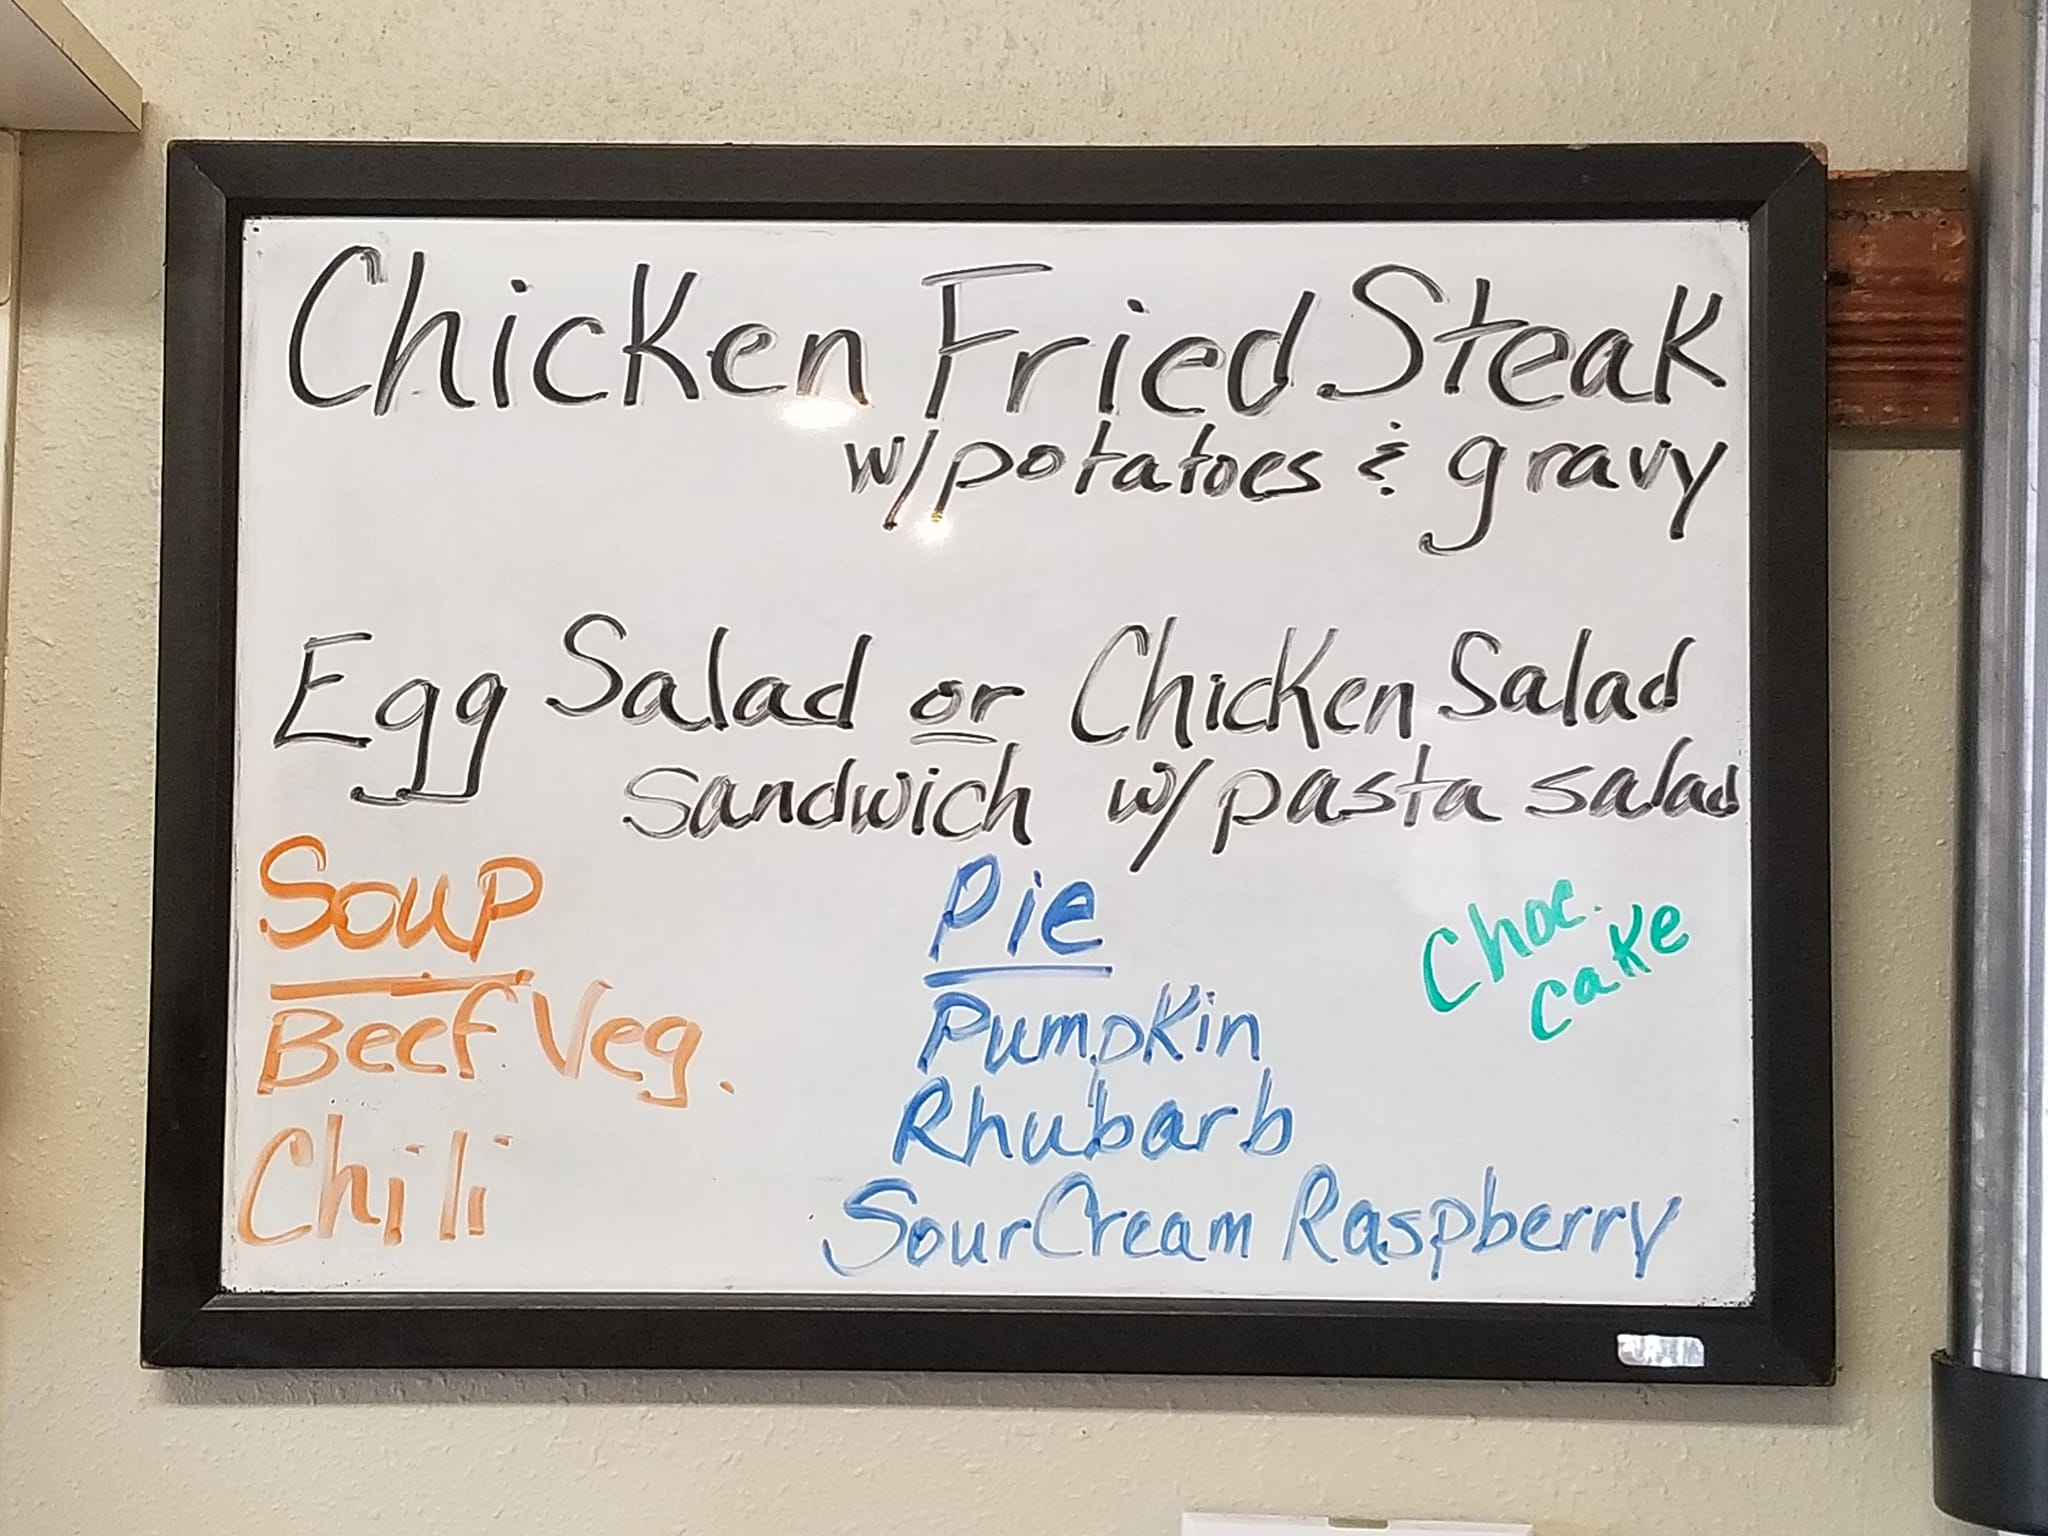 Chicken Fried Steak
w/potatoes & gravy
Egg Salad or Chicken Salad
sandwich w/pasta salad
Soup
Beef Veg.
Chili
Pie
Pumpkin
Rhubarb
Sour Cream Raspberry
Choc.
cake